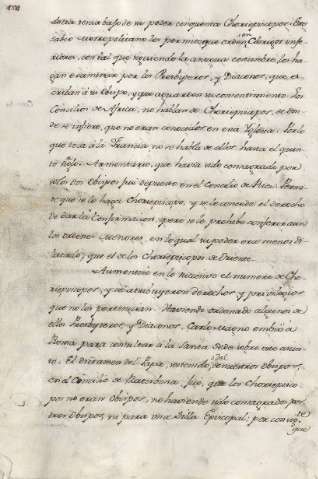 decia tenia bajo de su poder cinquenta Chorepiscopos. Este
sabio metropolitano les permite que ordenen Clerigos infe-
riores, con tal que siguiendo la antigua costumbre, les ha-
gan examinar por los Presbyteros, y Diaconos, que
avisen à su Obispo, y que aguarden su consentimiento. Los
Concilios de Africa, no hablan de Chorepiscopos, de don-
de se infiere, que no eran conocidos en esta Yglesia. Por lo
que toca à la Francia no se habla de ellos hasta el quin-
to siglo. Armentario, que havia sido consagrado por
solos dos Obispos fue depuesto en el Concilio de Riez. Permi-
te, que se le haga Chorepiscopo, y se le concede el derecho
de dar la Confirmacion, pero se le prohibe conferir aun
los ordenes Menores, en lo qual su poder era menos di-
latado, que el de los Chorepiscopos de Oriente.
Aumentose en lo sucesivo el numero de Cho-
repiscopos, y se atribuyeron derechos, y privilegios
que no les pertenecian. Haviendo ordenado algunos de
ellos Presbyteros, y Diaconos, Carlo Magno embiò à
Roma para consultar à la Santa Sede sobre este asun-
to. El dictamen del Papa, seguido del de nuestros Obispos,
en el Concilio de Ratisbona fue, que los Chorepisco-
pos no eran Obispos, no haviendo sido consagrados por
tres Obispos, ni para una Silla Episcopal: por consig-